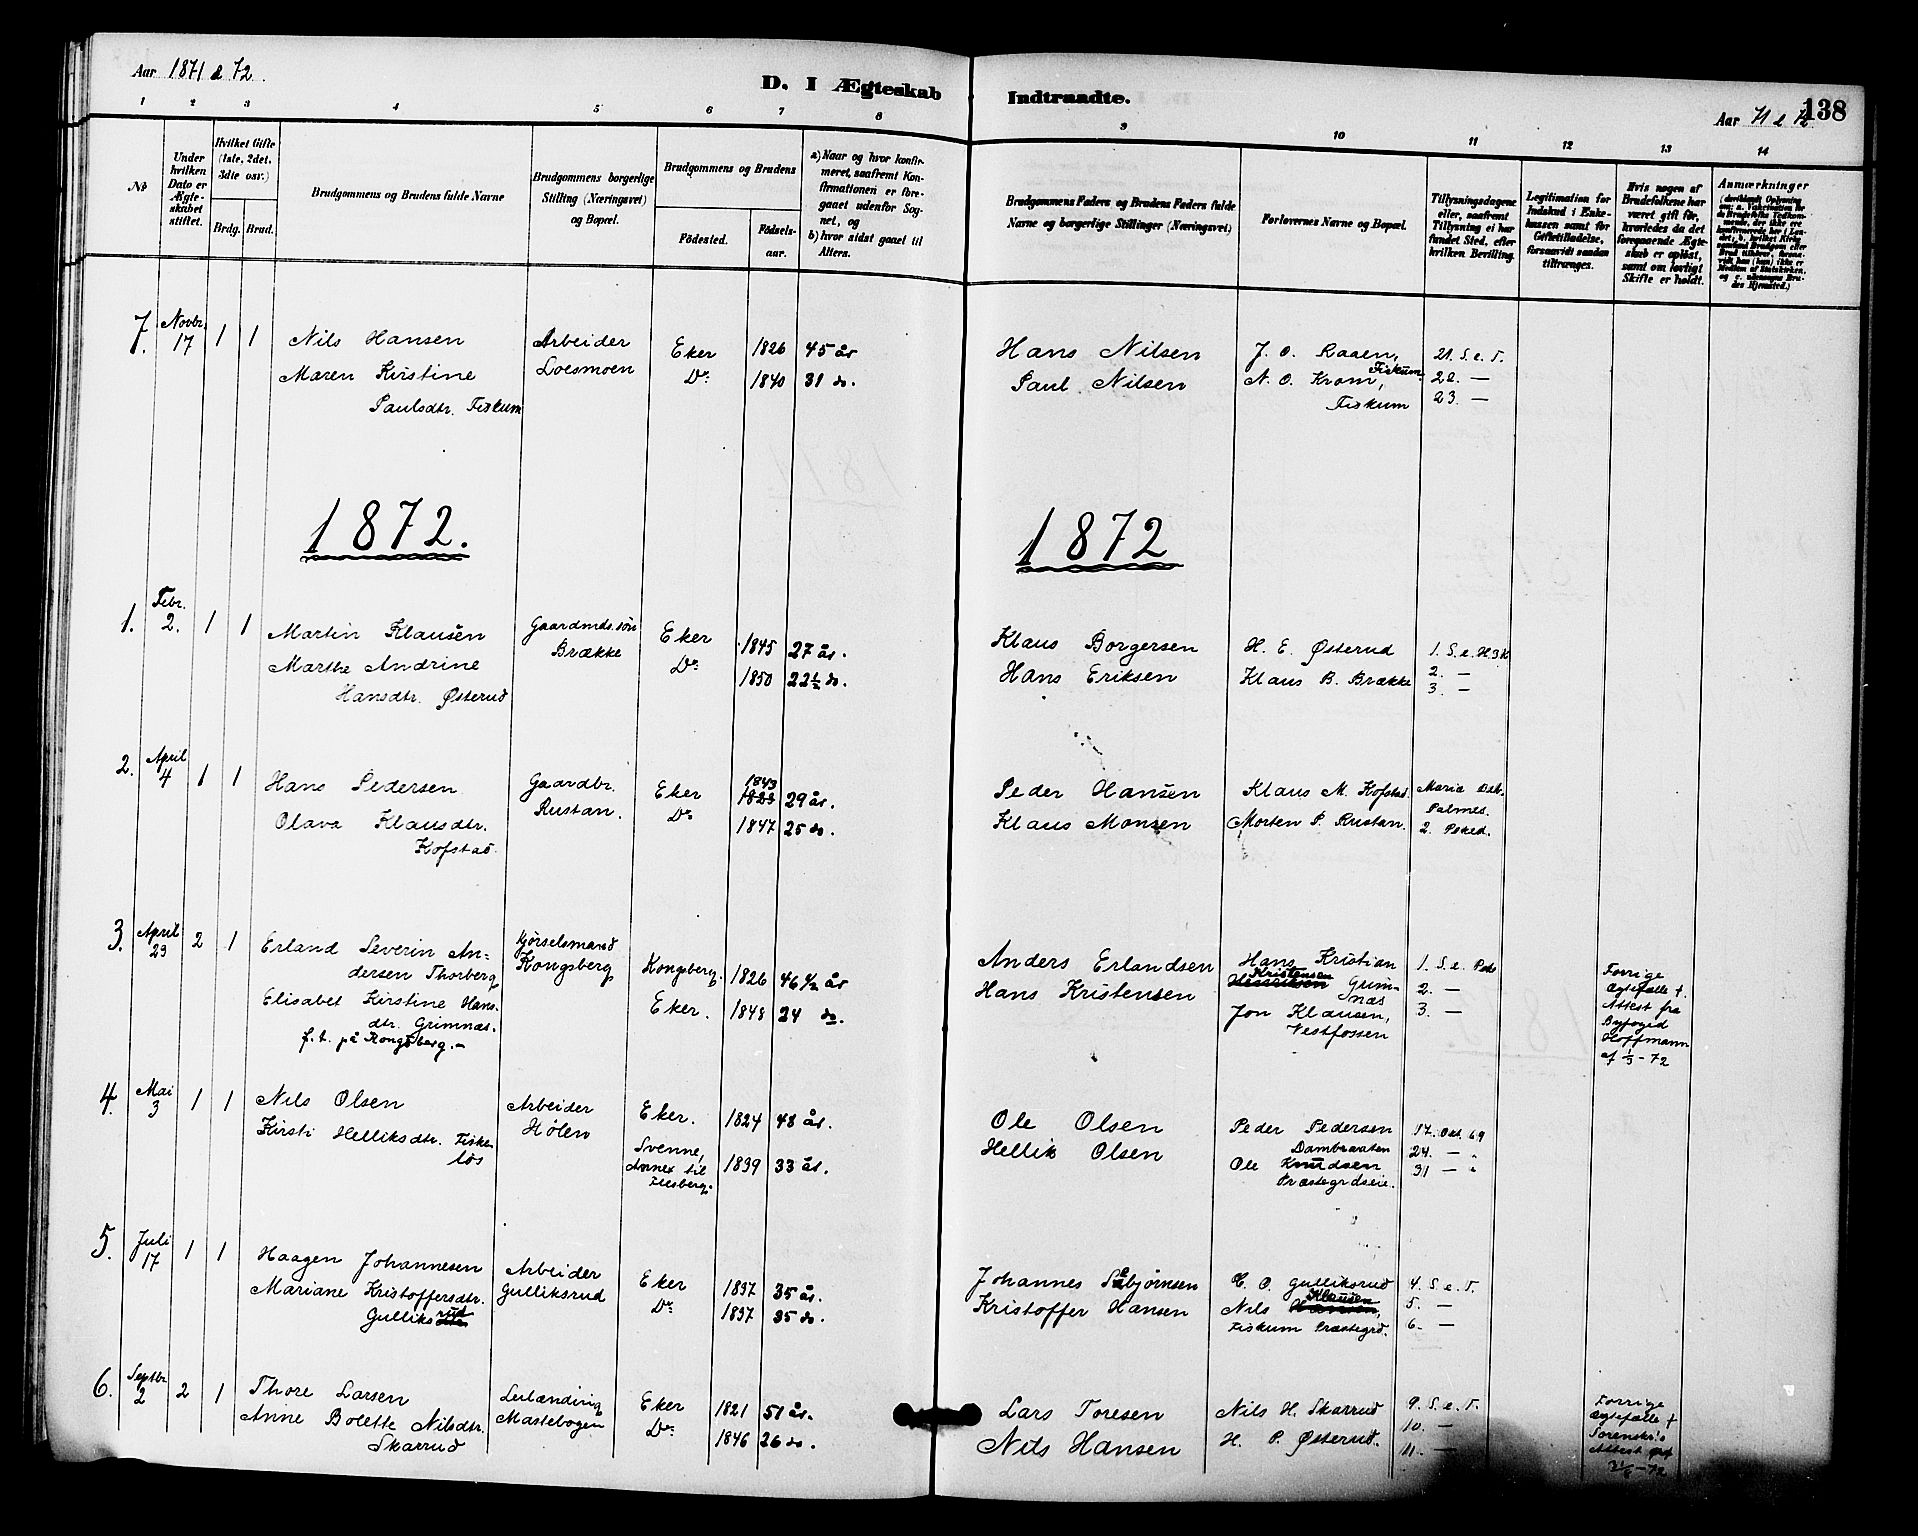 Aar 1871 & 72.
D. I Ægteskab Indtraadte.
Aar 71 & 72
138
1 2 3 4 5 6 7 8 9 10 11 12 13 14
No
Under hvilken Dato er Ægteskabet stiftet.
Hvilket Gifte (1ste, 2det, 3die osv.)
Brdg. Brud.
Brudgommens og Brudens fulde Navne
Brudgommens borgerlige Stilling (Næringsvei) og Bopæl.
Brudgommens og Brudens
Födested.
Födselsaar.
a) Naar og hvor konfirmeret, saafremt Konfirmationen er foregaaet udenfor Sognet, og
b) hvor sidst gaaet til Alters.
Brudgommens Faders og Brudens Faders fulde Navne og borgerlige Stillinger (Næringsvei)
Forlovernes Navne og Bopæl.
Tillysningsdagene eller, saafremt Tillysning ei har fundet Sted, efter hvilken Bevilling.
Legitimation for Indskud i Enkekassen samt for Giftetilladelse, forsaavidt saadan tiltrænges.
Hvis nogen af Brudefolkene har været gift før, hvorledes da det foregaaende Ægteskab er opløst, samt om lovligt Skifte er holdt.
Anmærkninger
7. Novbr. 17 1 1
Nils Hansen Arbeider Eker 1826 45 år
Maren Kirstine Loesmoen Do. 1840 31 do.
Paulsdtr. Fiskum
Hans Nilsen J. O. Raaen, Fiskum 21. S. e. T.
Paul Nilsen N. O. Krom, 22. —
Fiskum 23. —
1872. 1872
1. Febr. 2. 1 1
Martin Klausen Gaardmds. søn Eker 1845 27 år.
Marthe Andrine Brække Do. 1850 22½ do.
Hansdtr. Østerud
Klaus Borgersen H. E. Østerud 1. S. e. H3K
Hans Eriksen Klaus B. Brække 2. —
3. —
2. April 4 1 1
Hans Pedersen Gaardbr. Eker 1843 1823 29 år.
Olava Klausdtr. Rustan. Do 1847 25 do.
Kofstad.
Peder Hansen Klaus M. Kofstad Maria
Klaus Monsen Morten P. Rustan. Palmes.
2. Psked.
3. April 23 2 1
Erland Severin An- Kjørselsmand
dersen Thorberg Kongsberg Kongsberg. 1826 46½ år
Elisabet Kirstine Hans- Eker. 1848 24 do.
dtr. Grimnæs.
f. t. på Kongsberg.–
Anders Erlandsen Hans Kristian 1. S. e. Pske
Hans Kristensen Kristensen Henriksen Grim- 2. —
næs
Jon Klausen, 3. —
Vestfossen
Forrige
ægtefælle †.
Attest fra
Byfoged
Hoffmann
4. Mai 3 1 1
Nils Olsen Arbeider Eker. 1824 48 år.
Kirsti Helliksdtr. Fiske- Hølen Svenne, 1839 33 år.
løs Annex til
Flesberg.
Ole Olsen Peder Pedersen 17. Okt. 69
Hellik Olsen Dambraaten 24. —
Ole Knudsen 31 —
Præstegrdseie.
5. Juli 17 1 1
Haagen Johannesen Arbeider Eker 1837 35 år.
Mariane Kristoffersdtr. Gulliksrud Do. 1837 35 do.
Gulliksrud
Johannes Sebjørnsen C. O. Gulliksrud 4. S. e. T.
Kristoffer Hansen Nils Klausen Hansen, 5. —
Fiskum Præstegrd. 6. —
6. Septbr. 2 2 1
Thore Larsen Leilænding Eker 1821 51 år.
Anne Bolette Nilsdtr. Mastebogen Do. 1846 26 do.
Skarrud
Lars Toresen Nils H. Skarrud 9. S. e. T.
Nils Hansen H. P. Østerud. 10. —
11. —
Forrige
ægtefælle †
Sorenskr.s
Attest